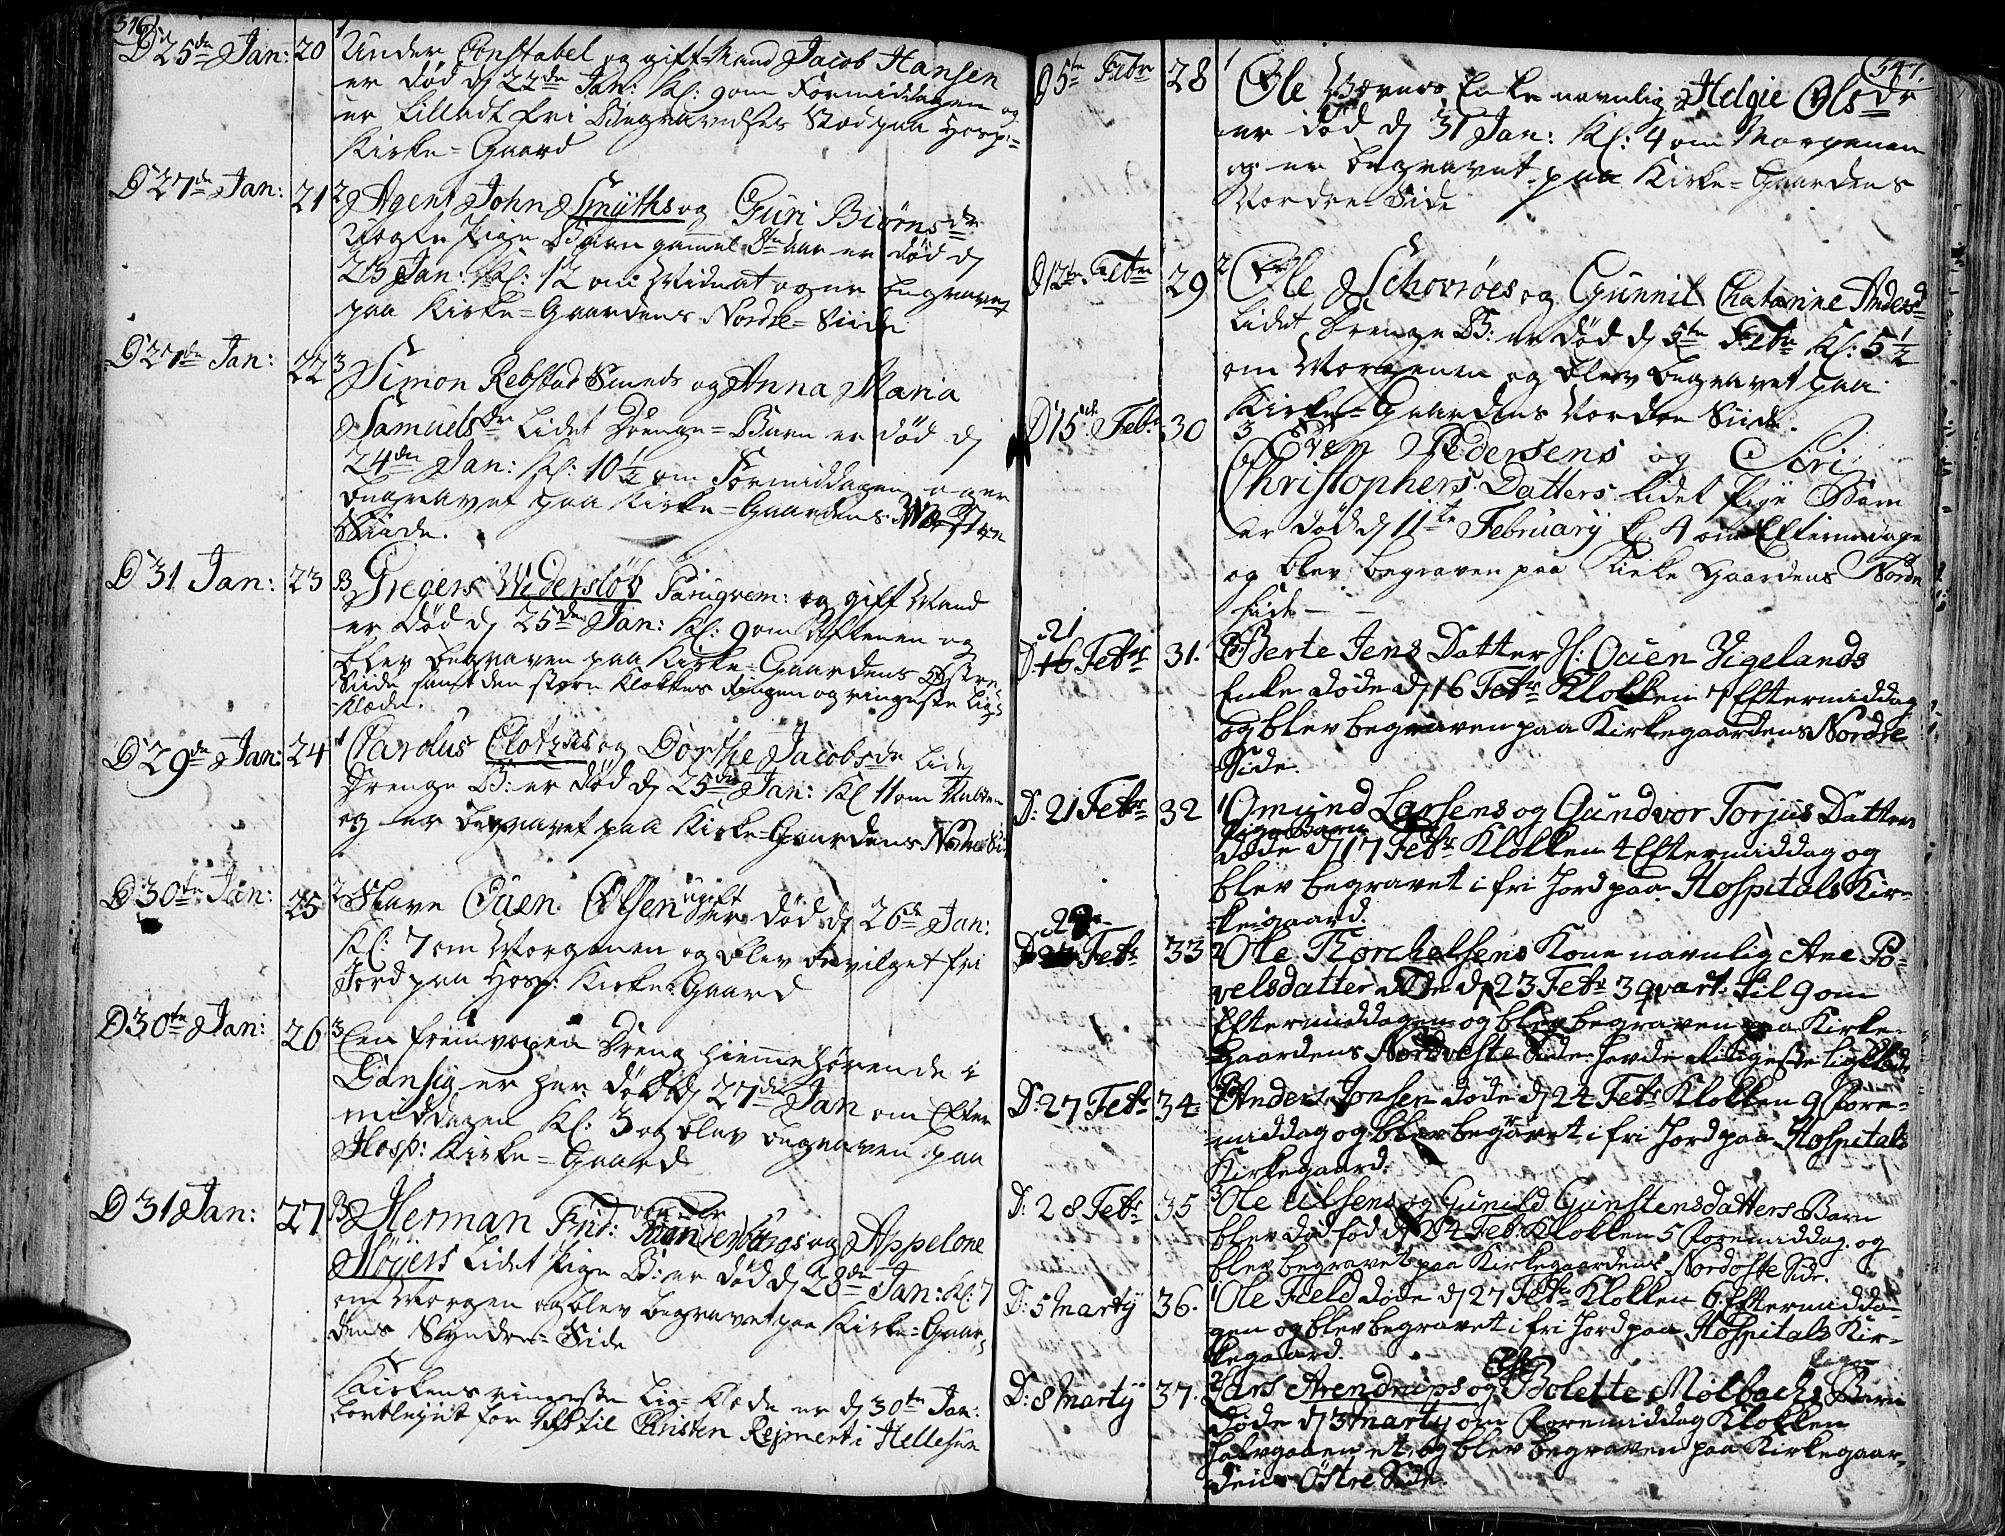 546
D 25de Jan: 20 1 Under Constabel og gift Mand Jacob Hansen
er død d 22de Jan: Kl: 9 om Formiddagen og
er tilladt fri Begravelses Stæd paa Hosp:
Kirke=Gaard
D 27de Jan: 21 2 Agent John Smyths og Guri Biørnsdr
uægte Pige Barn gammel 8te aar er død d
23 Jan: Kl: 12 om Midnat og er begravet
paa Kirke=Gaardens Nordre=Siide
D 27de Jan: 22 3 Simon Rebstad Smeds og Anna Maria
Samuelsdr lidet Drenge=Barn er død d
24de Jan: Kl: 10½ om Formiddagen og er
begravet paa Kirke=Gaardens
Siide.
D 31 Jan: 23 B Gregers Widersløb Parugvem: og gift Mand
er død d 25de Jan: Kl: 9 om Aftenen og
blev begraven paa Kirke=Gaardens Østre
Siide samt den store Klokkes Ringen og ringeste Lig
Klæde.
D 29de Jan: 24 1 Carolus Clotzes og Dorthe Jacobsdr lidet
Drenge B: er død d 25de Jan: Kl 11 om Aftenen
og er begravet paa Kirke=Gaardens Nordre Si:
D 30te Jan: 25 2 Slave Ouen Olsen ugift er død d 26de Jan:
Kl: 7 om Morgenen og blev bevilget fri
Jord paa Hosp: Kirke=Gaard
D 30te Jan: 26 3 Een fremmed Dreng hiemmehørende i
Dansig er her død d 27de Jan om Efter
middagen Kl: 3 og blev begraven paa
Hosp: Kirke=Gaard
D 31 Jan: 27 B Herman Frid: og Appelone
Møyers lidet Pige B: er død d 28de Jan: Kl: 7
om Morgen og blev begravet paa Kirke=Gaar
dens Syndre=Side
Kirkens ringeste Lig=Klæde er d 30te Jan:
bortlejet for til Christen Rejmert i Hellesun
547.
D 5te Febr 28 1 Ole Enke navnlig Helgie Olsdr
er død d 31 Jan: Kl: 4 om Morgenen
og er begravet paa Kirke=Gaardens
Nordre Side
D 12te Febr 29 2 Ole Schovrøes og Gunnil Chatarine Andersd
lidet Drenge B: er død d 5te Febr Kl: 5½
om Morgenen og blev begravet paa
Kirke=Gaardens Nordre Siide.
D 15de Feb: 30 3 Even Pedersens og Siri
Christophers Datters lidet Pige Barn
er død d 11te February k: 4 om Eftermidagen
og blev begraven paa Kirke Gaardens Nordre
Side
21
D 16 Febr 31. Berte Jens Datter Sl: Ouen Vigelands
Enke døde d 16 Febr Klokken 7 Eftermiddag
og blev begraven paa Kirkegaardens Nordre
Side.
D: 21 Febr 32 1 Omund Larsens og Gundvor Torjus Datters
Pige Barn
døde d 17 Febr Klokken 4 Eftermiddag og
blev begravet i fri Jord paa Hospitals Kir=
kegaard.
D Febr 33 2 Ole Thorchelsens Kone navnlig Ane Po=
velsdatter døde d 23 Febr 3 qvart: til 9 om
Eftermiddagen og blev begraven paa Kirke=
Gaardens Nordveste Side. Havde Ringeste ligklæde
D: 27 Febr 34 Anders Jonsen døde d 24 Febr Klokken 9 Fore=
middag og blev begravet i fri Jord paa Hospitals
Kirkegaard.
D: 28 Febr 35 3 Ole Nilsens og Gunild Gunstensdatters Barn
blev dødfød d 24 Feb: Klokken 5 Foremiddag. og
blev begravet paa Kirkegaardens Nordoste Side.
D: 5 Marty 36. 1 Ole Field døde d 27 Febr Klokken 6 Eftermidda=
gen og blev begravet i fri Jord paa Hospitals Kir=
kegaard.
D: 8 Marty 37. 2 Lars Arendrups og Else Bolette Molbachs Barn
døde d 3 Marty om Foremiddag Klokken
halvgaaen et, og blev begraven paa Kirkegaar,
dens Østre Side.